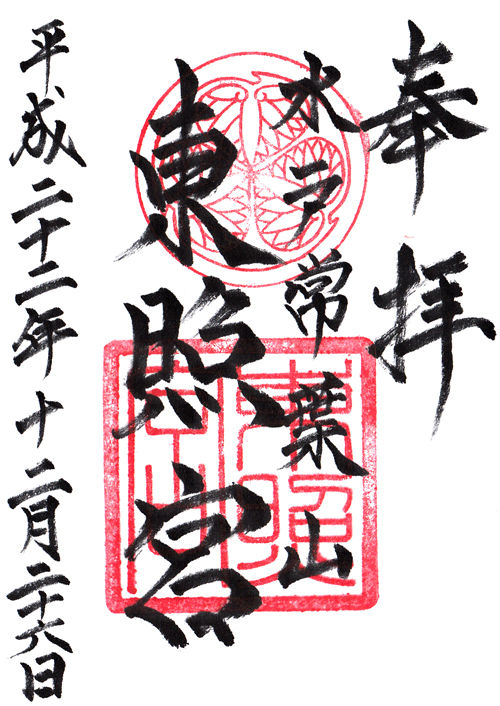 奉拝
水戸常葉山
東照宮
平成二十二年十二月二十六日